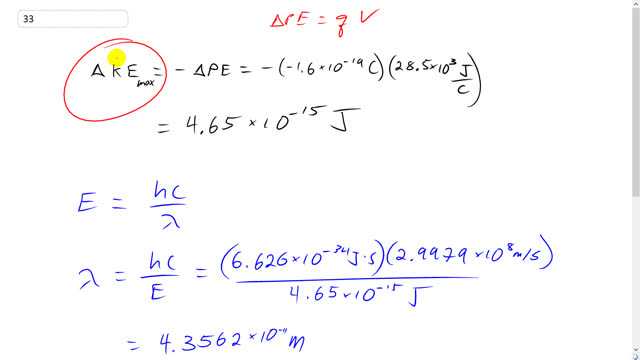 33
ΔPE = q V
ΔKE_max = - ΔPE = -(-1.6×10⁻¹⁹ C)(28.5×10³ J/C)
= 4.65 × 10⁻¹⁵ J
E = hc/λ
λ = hc/E = (6.626×10⁻³⁴ J·s)(2.9979×10⁸ m/s)/4.65×10⁻¹⁵ J
= 4.3562×10⁻¹¹ m